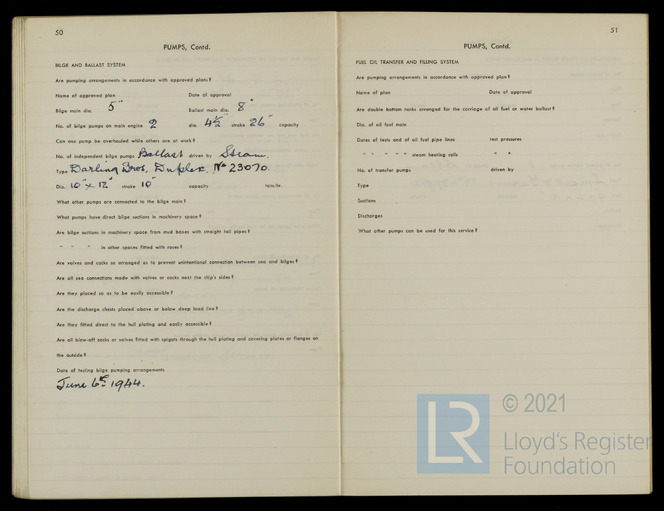 50
PUMPS, Contd.
BILGE AND BALLAST SYSTEM
Are pumping arrangements in accordance with approved plans?
Name of approved plan Date of approval
Bilge main dia. 5" Ballast main dia. 8"
No. of bilge pumps on main engine 2 dia. 4½" stroke 26" capacity
Can one pump be overhauled while others are at work?
No. of independent bilge pumps Ballast driven by Steam.
Type Darling Bros, Duplex. No 23070.
Dia. 10" x 12" stroke 10" capacity tons/hr.
What other pumps are connected to the bilge main?
What pumps have direct bilge suctions in machinery space?
Are bilge suctions in machinery space from mud boxes with straight tail pipes?
" " " in other spaces fitted with roses?
Are valves and cocks so arranged as to prevent unintentional connection between sea and bilges?
Are all sea connections made with valves or cocks next the ship's sides?
Are they placed so as to be easily accessible?
Are the discharge chests placed above or below deep load line?
Are they fitted direct to the hull plating and easily accessible?
Are all blow-off cocks or valves fitted with spigots through the hull plating and covering plates or flanges on
the outside?
Date of testing bilge pumping arrangements
June 6th 1944.
51
PUMPS, Contd.
FUEL OIL TRANSFER AND FILLING SYSTEM
Are pumping arrangements in accordance with approved plan?
Name of plan Date of approval
Are double bottom tanks arranged for the carriage of oil fuel or water ballast?
Dia. of oil fuel main
Dates of tests and of oil fuel pipe lines test pressures
" " " " steam heating coils " "
No. of transfer pumps driven by
Type
Suctions
Discharges
What other pumps can be used for this service?
LR
© 2021
Lloyd's Register
Foundation